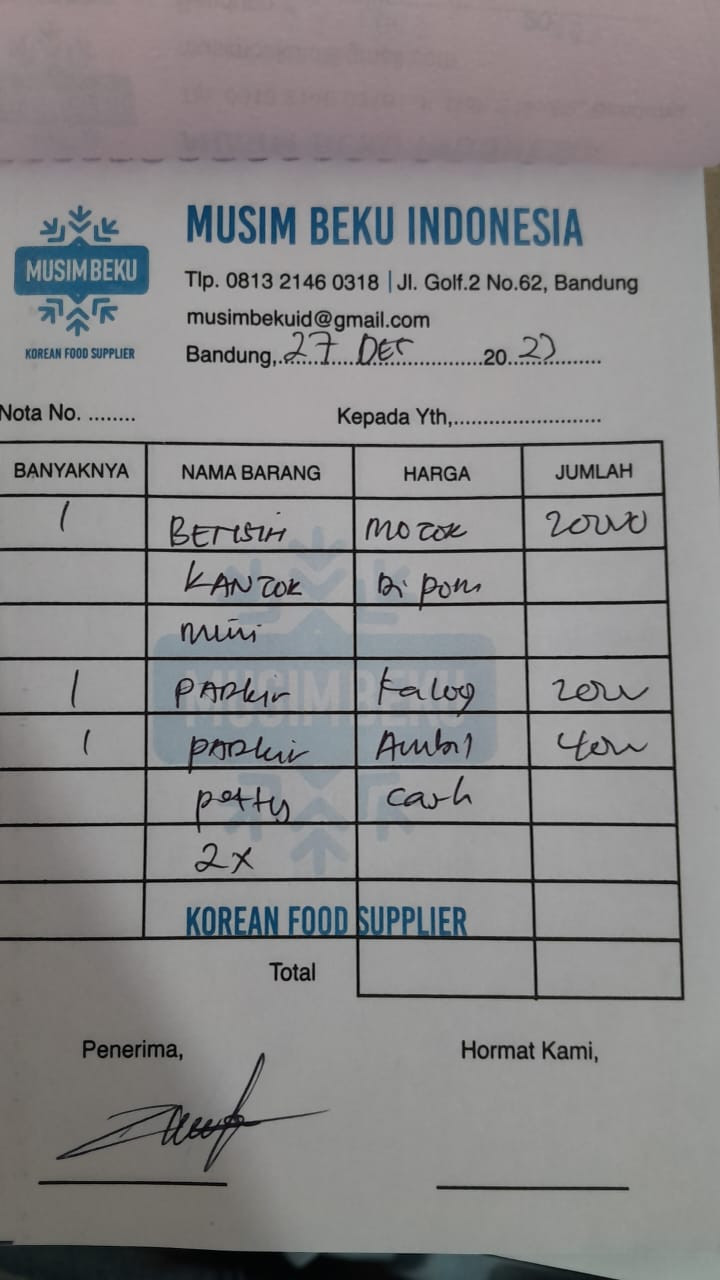 MUSIM BEKU INDONESIA
MUSIM BEKU
KOREAN FOOD SUPPLIER
Tlp. 0813 2146 0318 | Jl. Golf.2 No.62, Bandung
musimbekuid@gmail.com
Bandung, 27 DEC 20
Nota No. ........ Kepada Yth,..........................
BANYAKNYA NAMA BARANG HARGA JUMLAH
1 MOTOR 20000
KANTOR Di pom
mini
1 PARkir 2000
1 PARkir Ambil 4000
petty cash
2x
MUSIM BEKU
KOREAN FOOD SUPPLIER
Total
Penerima, Hormat Kami,